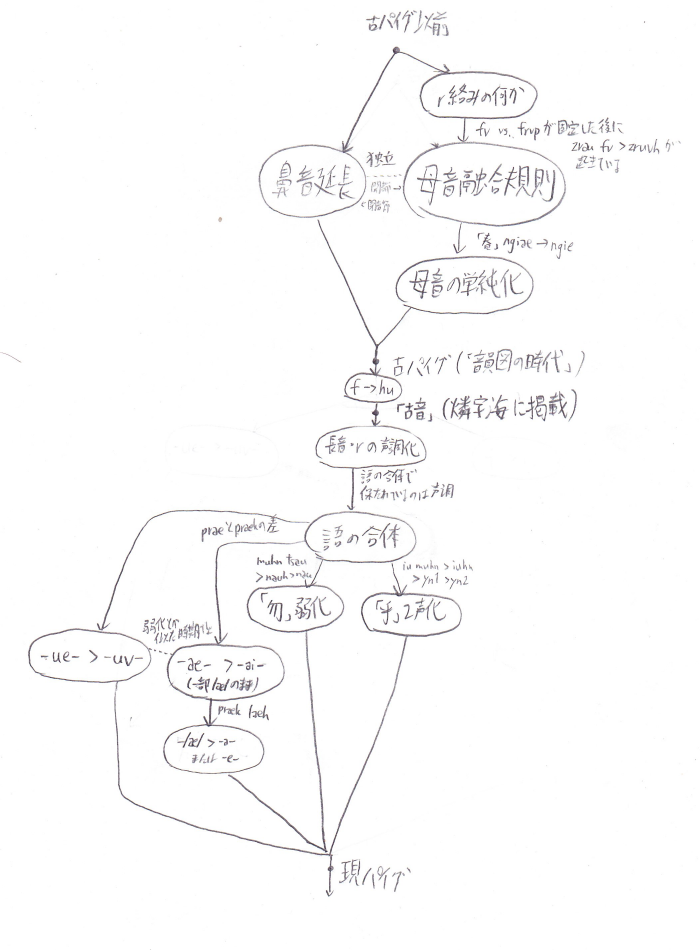 古パイグ以前
r絡みの何か
fv vs. frup が固定した後に
zrau fv > zruuh が
起きている
鼻音延長
独立
開音節→
←閉音節
母音融合規則
「春」ngiae→ngie
母音の単純化
古パイグ(「韻図の時代」)
f→hu
「古音」(燐字海に掲載)
長音・rの声調化
語の合体で
保たれているのは声調
語の合体
praeとpraekの差
muhn tsau
> nauh > nau
iu muhn > iuhn
> yn1 > yn2
「勿」弱化
「手」2声化
-ue- > -uv-
弱化とか
似た時期
-ae- > -ai-
(一部/ae/のまま)
praek taeh
/ae/ > -a-
または -e-
現パイグ